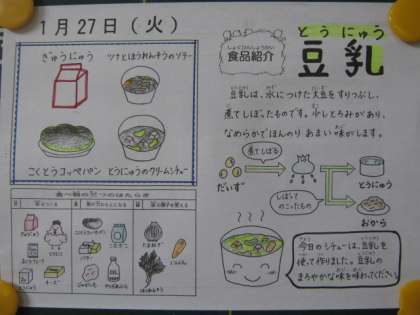 1月27日（火）
ぎゅうにゅう
ツナとほうれんそうのソテー
こくとうコッペパン
とうにゅうのクリームシチュー
しょくひんしょうかい
食品紹介
とうにゅう
豆乳
豆乳は、水につけた大豆をすりつぶし、
煮てしぼったものです。少しとろみがあり、
なめらかでほんのりあまい味がします。
煮てしぼる
だいず
しぼって
のこったもの
とうにゅう
おから
今日のシチューは、豆乳を
使って作りました。豆乳の
まろやかな味を味わってください。
ぎゅうにゅう
とりにく
チーズ
バター
じゃがいも
たまねぎ
にんじん
ほうれんそう